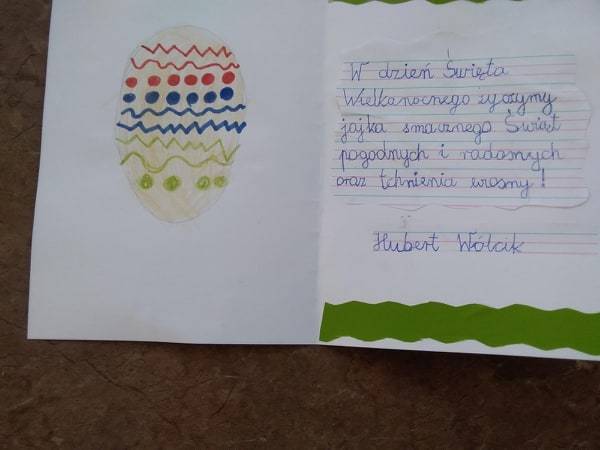 W dzień Święta
Wielkanocnego życzymy
jajka smacznego Świąt
pogodnych i radosnych
oraz tchnienia wiosny!
Hubert Wólcik